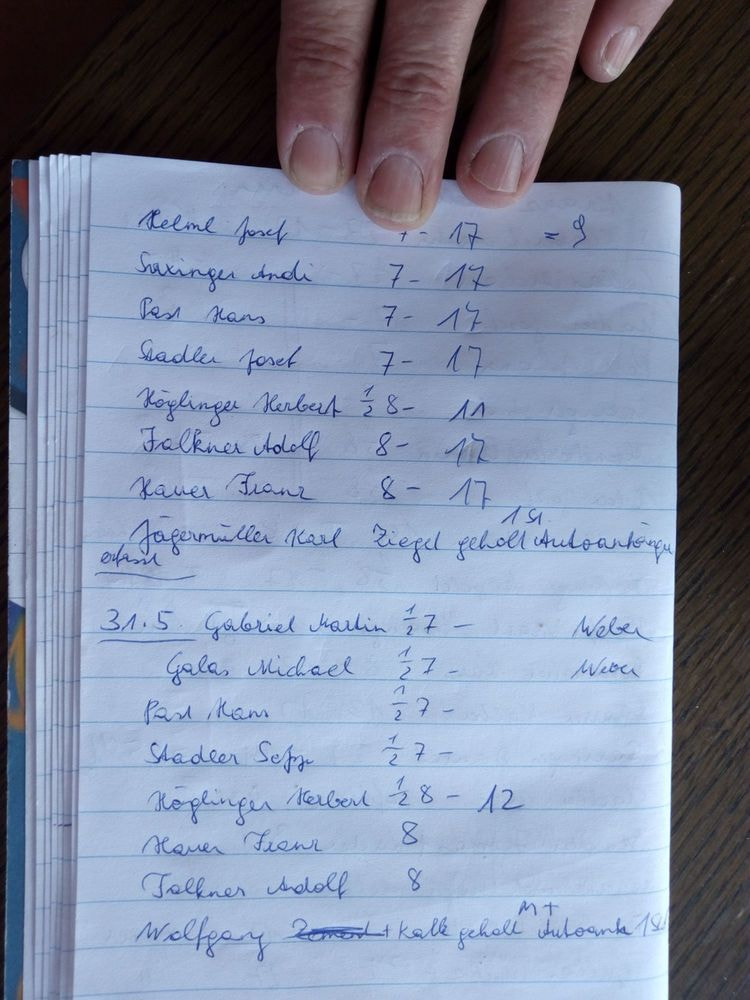 Helml Josef 7- 17 = 9
Saxinger Andi 7- 17
Past Hans 7- 17
Stadler Josef 7- 17
Höglinger Herbert 1/2 8- 11
Falkner Adolf 8- 17
Hauer Franz 8- 17
1 St
Jägermüller Karl Ziegel geholt Autoanhänger
erfasst
31.5. Gabriel Martin 1/2 7- Weber
Galas Michael 1/2 7- Weber
Past Hans 1/2 7-
Stadler Sepp 1/2 7-
Höglinger Herbert 1/2 8- 12
Hauer Franz 8
Falkner Adolf 8
M+
Wolfgang Zement + Kalk geholt Autoanh 1 Std